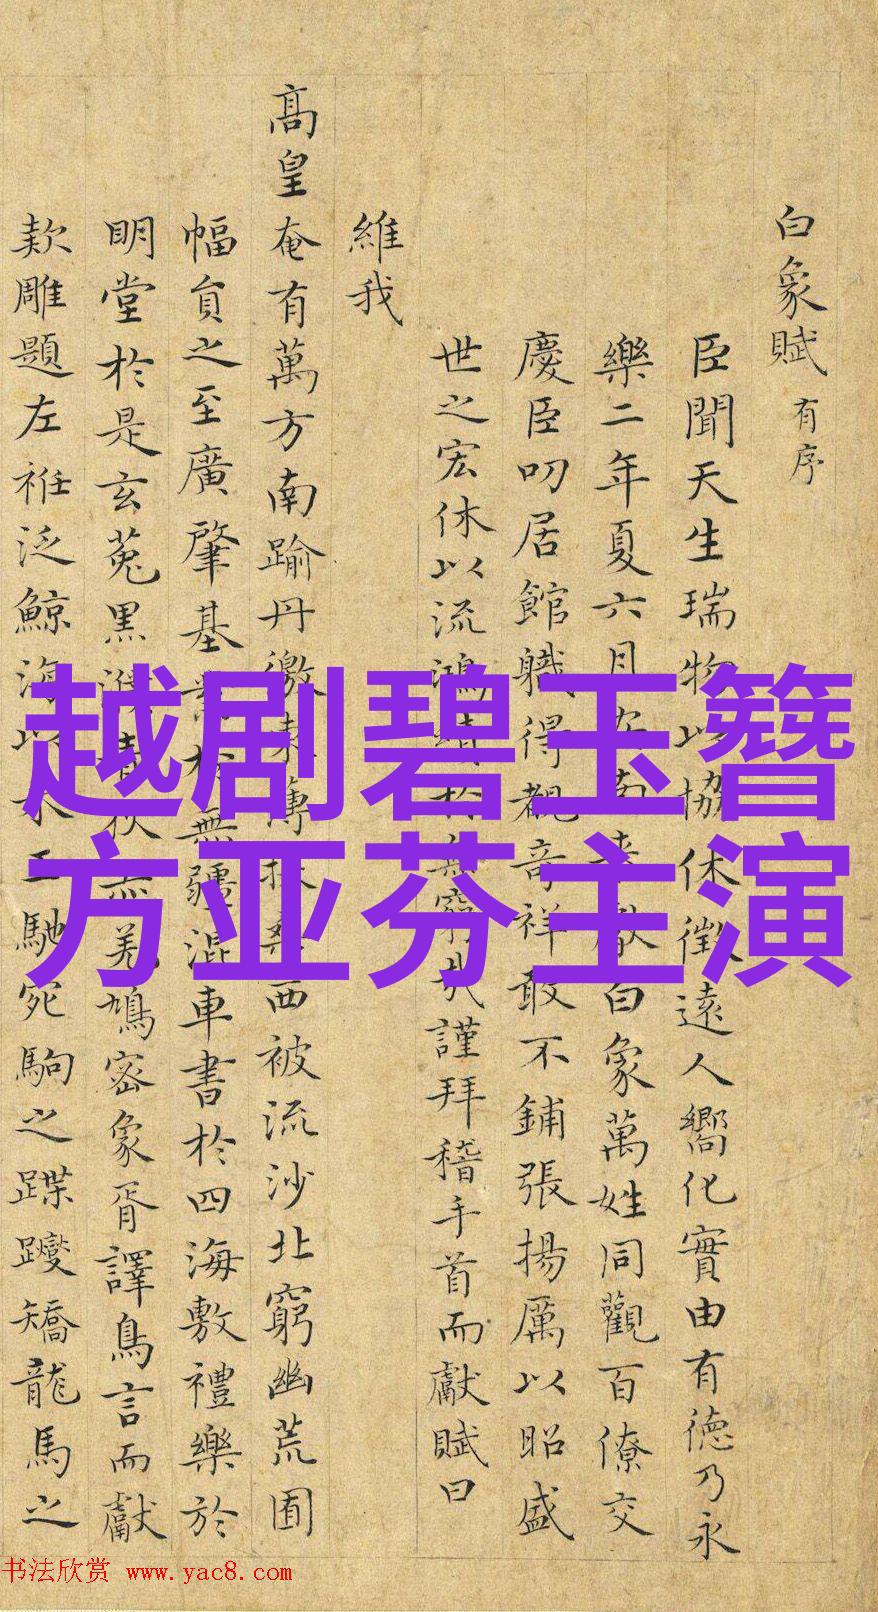 白象賦 有序
臣聞天生瑞物以協休徵遠人嚮化實由有德乃永
樂二年夏六月安南獻白象萬姓同觀百僚交
慶臣叨居館職得覩奇祥敢不鋪張揚厲以昭盛
世之宏休以流鴻於無窮哉謹拜稽手首而獻賦曰
維我
高皇奄有萬方南踰丹徼東薄扶桑西被流沙北窮幽荒囿
幅員之至廣肇基業於無疆混車書於四海敷禮樂於
明堂於是玄菟黑濮羌鳩密象胥譯鳥言而獻
欵雕題左袵泛鯨海以水工馳宛駒之蹀躞矯龍馬之
越剧碧玉簪
方亚芬主演
书法欣赏 www.yac8.com